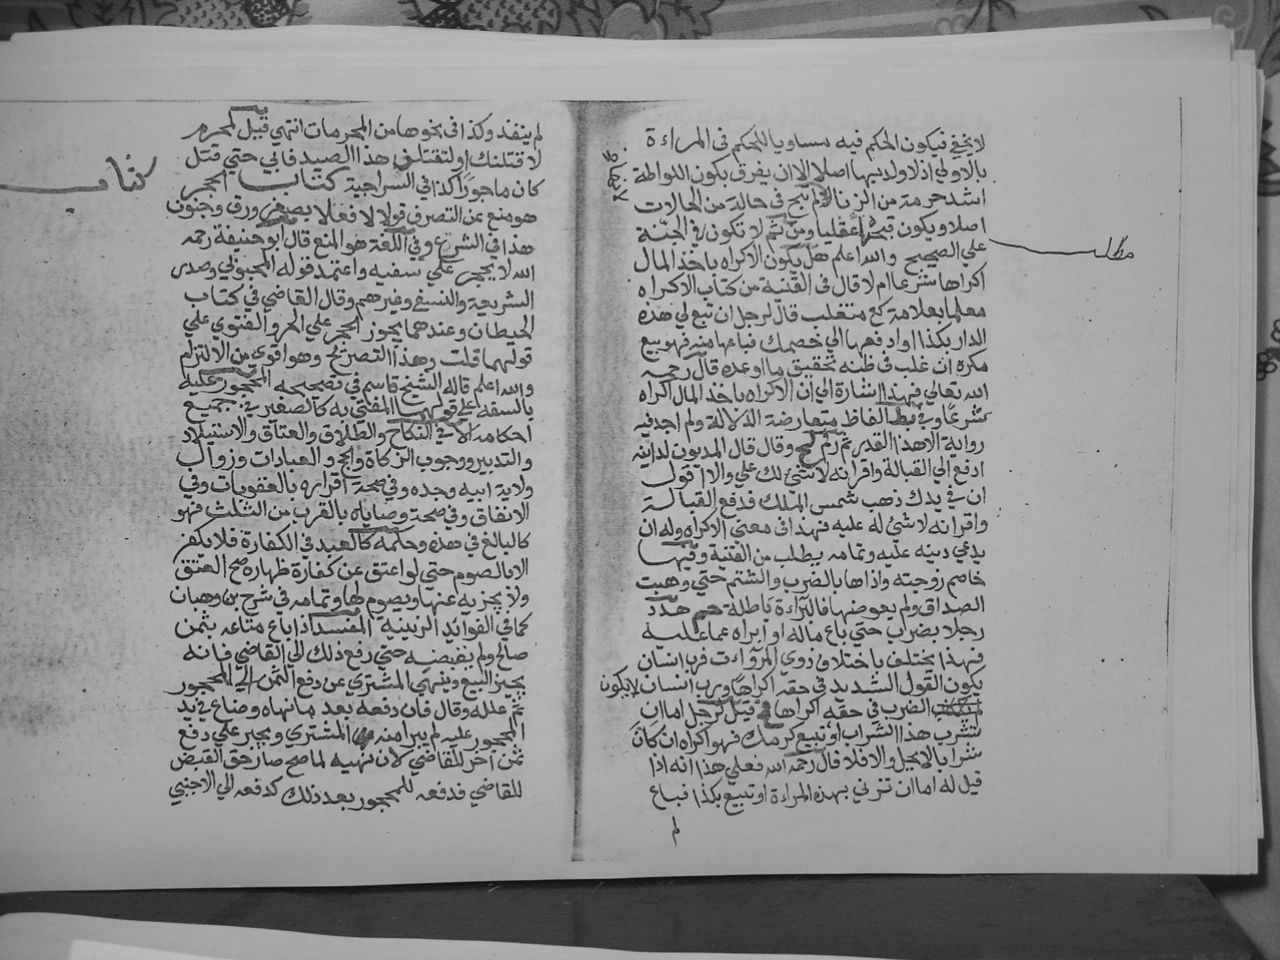 لا يخفي فيكون الحكم فيه مساويا للحكم في المراءة
بالاولي اذ لا ولد يها اصلا الا ان يفرق بكون اللواطة
اشد حرمة من الزنا لانه لم يبح في حالة من الحالات
اصلا ويكون قبحها عقليا ومن ثم لا تكون في الجنة
على الصحيح والله اعلم هل يكون الاكراه باخذ المال
مطلب
اكراها شرعا ام لا قال في القنية من كتاب الاكراه
معلما بعلامة كع متغلب قال لرجل ان تبع لي هذه
الدار بكذا او ادفعها الي خصمك فباعها منه فهو بيع
مكره ان غلب في ظنه تحقيق ما اوعده قال رحمه
الله تعالي فهذا اشارة الي ان الاكراه باخذ المال اكراه
شرعا وفي الفاظ متعارضة الدلالة ولم اجد فيه
رواية الا هذا القدر ثم رقم وقال قال المديون لداينه
ادفع الي القبالة واقر انه لا شئ لك علي والا اقول
ان في يدك ذهب شمس الملك فدفع القبالة
واقر انه لا شئ له عليه فهذا في معني الاكراه وله ان
يدعي دينه عليه وتمامه يطلب من القنية وفيها
خاصم زوجته واذاها بالضرب والشتم حتي وهبت
الصداق ولم يعوضها فالبراءة باطلة هدد
رجلا بضرب حتي باع ماله او ابراه عما عليه
فهذا يختلف باختلاف ذوي المروآت فرب انسان
يكون القول الشديد في حقه اكراها ورب انسان لا يكون
الضرب في حقه اكراها قيل لرجل اما ان
تشرب هذا الشراب او تبيع كرمك فهو اكراه ان كان
شرابا لا يحل والا فلا قال رحمه الله فعلي هذا انه اذا
قيل له اما ان تزني بهذه المراءة او تبيع بكذا فباع
لم
لم ينفذ وكذا في نحوها من المحرمات انتهي قيل لمحرم
لا قتلنك او لتقتلن هذا الصيد فابي حتي قتل
كان ماجورا كذا في السراجية كتاب الحجر
كتاب
هو منع عن التصرف قولا لا فعلا بصغر ورق وجنون
هذا في الشرع وفي اللغة هو المنع قال ابو حنيفة رحمه
الله لا يحجر علي سفيه واعتمد قوله المحبوبي وصدر
الشريعة والنسفي وغيرهم وقال القاضي في كتاب
الحيطان وعندهما يجوز الحجر علي الحر والفتوي علي
قولهما قلت وهذا التصريح وهو اقوي من الالتزام
والله اعلم قاله الشيخ قاسم في تصحيحه المحجور عليه
بالسفه علي قولهما المفتي به كالصغير في جميع
احكامه الا في النكاح والطلاق والعتاق والاستيلاد
والتدبير ووجوب الزكاة والحج والعبادات وزوال
ولاية ابيه وجده وفي صحة اقراره بالعقوبات وفي
الانفاق وفي صحة وصاياه بالقرب من الثلث فهو
كالبالغ في هذه وحكمه كالعبد في الكفارة فلا يكفر
الا بالصوم حتي لو اعتق عن كفارة ظهاره صح العتق
ولا يجزيه عنها ويصوم لها وتمامه في شرح بن وهبان
كما في الفوائد الزينية المفسد اذا باع متاعه بثمن
صالح ولم يقبضه حتي رفع ذلك الي القاضي فانه
يجيز البيع وينهي المشتري عن دفع الثمن الي المحجور
ثم علله وقال فان دفعه بعد ما نهاه وضاع في يد
المحجور عليه لم يبرا منه المشتري ويجبر علي دفع
ثمن اخر للقاضي لان نهيه لما صح صار حق القبض
للقاضي فدفعه للمحجور بعد ذلك كدفعه الي الاجنبي